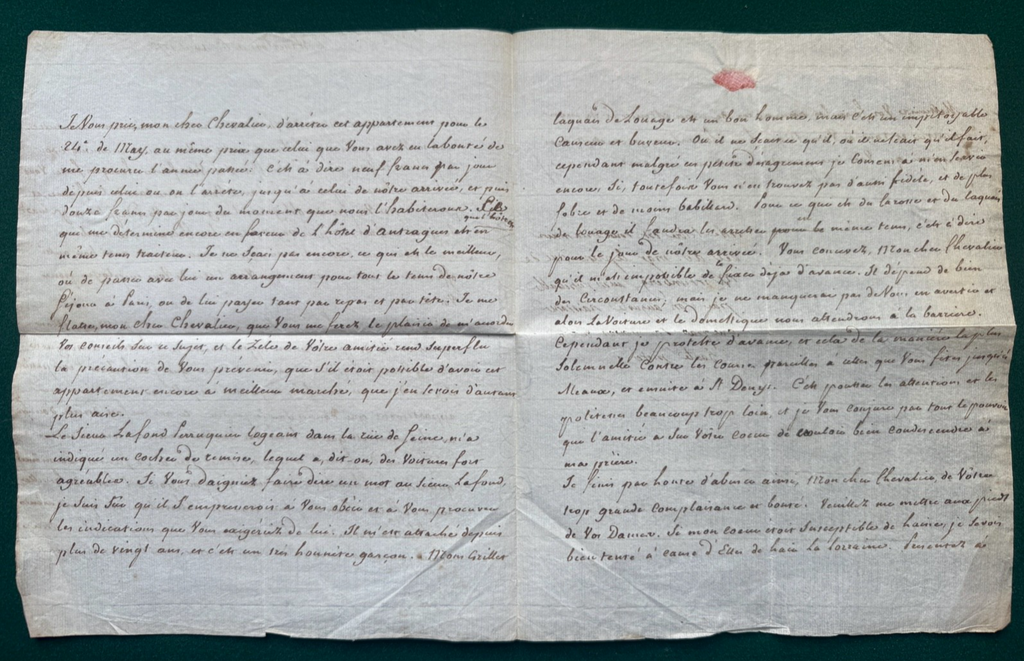 Je Vous prie, mon cher Chevalier, d'arrêter cet appartement pour le
24e de May, au même prix que celui que Vous avez eu la bonté de
me procurer l'année passée. C'est à dire neuf francs par jour
depuis celui où on l'arrête, jusqu'à celui de nôtre arrivée, et puis
douze francs par jour du moment que nous l'habiterons.
qui me détermine encore en faveur de l'hôtel d'Antragues est un
même tems traiteur. Je ne scais pas encore, ce qui est le meilleur,
où de passer avec lui un arrangement pour tout le tems de nôtre
séjour à Paris, ou de lui payer tant par repas et par tête. Je me
flatte, mon cher Chevalier, que Vous me ferez le plaisir de m'accorder
Vos conseils sur ce sujet, et le Zèle de Vôtre amitié rend superflu
la précaution de Vous prévenir, que s'il étoit possible d'avoir cet
appartement encore à meilleur marché, que j'en serois d'autant
plus aise.
Le Sieur Lafond Perruquier logeant dans la rüe de Seine, m'a
indiqué un cocher de remise, lequel a, dit-on, des Voitures fort
agréables. Si Vous daigniez faire dire un mot au Sieur Lafond,
je suis sûr qu'il s'empresseroit à Vous obéir et à Vous procurer
les indications que Vous exigeriez de lui. Il m'est attaché depuis
plus de vingt ans, et c'est un très honnête garçon.
laquais de Louage est un bon homme, mais c'est un impitoyable
Causeur et buveur. Où il ne scait ce qu'il dit, où il ne scait ce qu'il fait,
cependant malgré ces petits désagremens je consens à m'en servir
encore. Si, toutefois Vous n'en trouvez pas d'aussi fidèle, et de plus
sobre et de moins babillard. Pour ce que est du carosse et du laquais
de louage il faudra les arrêter pour en même tems, c'est à dire
pour le jour de nôtre arrivée. Vous concevez, Mon cher Chevalier
qu'il m'est impossible de le fixer déja d'avance. Il dépend de bien
des Circonstances, mais je ne manquerai pas de Vous en avertir et
alors La Voiture et le domestique nous attendrons à la barriere.
Cependant je proteste d'avance, et cela de la manière la plus
solemnelle contre les courses pareilles à celles que Vous fites jusqu'à
Meaux, et ensuite à St Denys. C'est pousser les attentions et les
politesses beaucoup trop loin, et je Vous conjure par tout le pouvoir
que l'amitié a sur Vôtre coeur de vouloir bien condescendre à
ma prière.
Je finis par honte d'abuser ainsi, Mon cher Chevalier, de Vôtre
trop grande Complaisance et bonté. Veuillez me mettre aux pieds
de Vos Dames. Si mon coeur étoit susceptible de haine, je serois
bien tenté à cause d'Elles de haïr La Lorraine. Présentez à